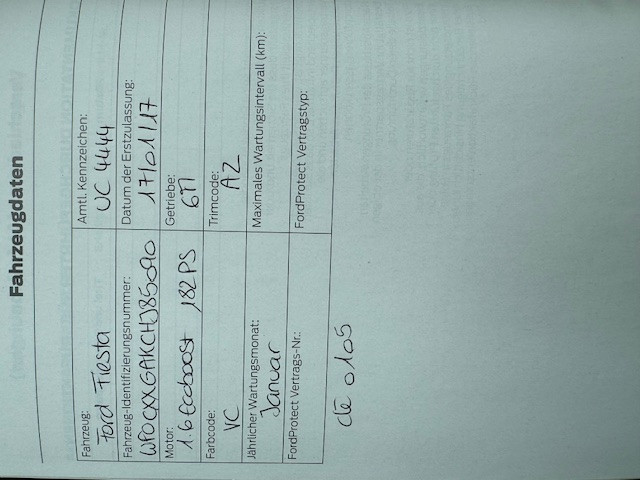 Fahrzeugdaten
Fahrzeug: Amtl. Kennzeichen:
Ford Fiesta UC 4444
Fahrzeug-Identifizierungsnummer: Datum der Erstzulassung:
17/01/17
Motor: Getriebe:
1.6 Ecoboost 182 PS
Farbcode: Trimcode:
VC AZ
Jährlicher Wartungsmonat: Maximales Wartungsintervall (km):
Januar
FordProtect Vertrags-Nr.: FordProtect Vertragstyp:
0105